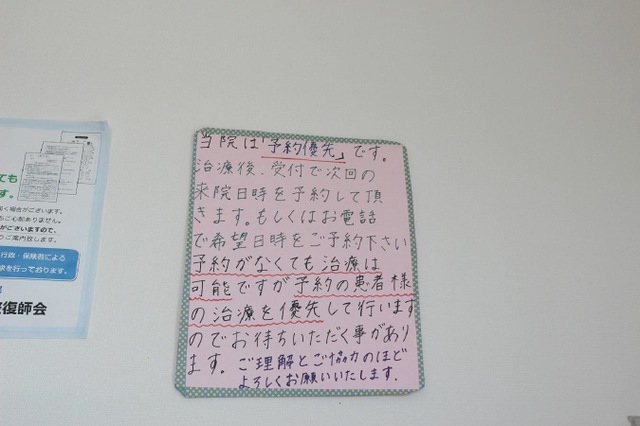 当院は「予約優先」です。
治療後、受付で次回の
来院日時を予約して頂
きます。もしくはお電話
で希望日時をご予約下さい
予約がなくても治療は
可能ですが予約の患者様
の治療を優先して行います
のでお待ちいただく事があり
ます。ご理解とご協力のほど
よろしくお願いいたします.
ても
す。
く場合がございます。
もご心配ありません。
がございますので、
りご案内致します。
行政・保険者による
求を行っております。
復師会